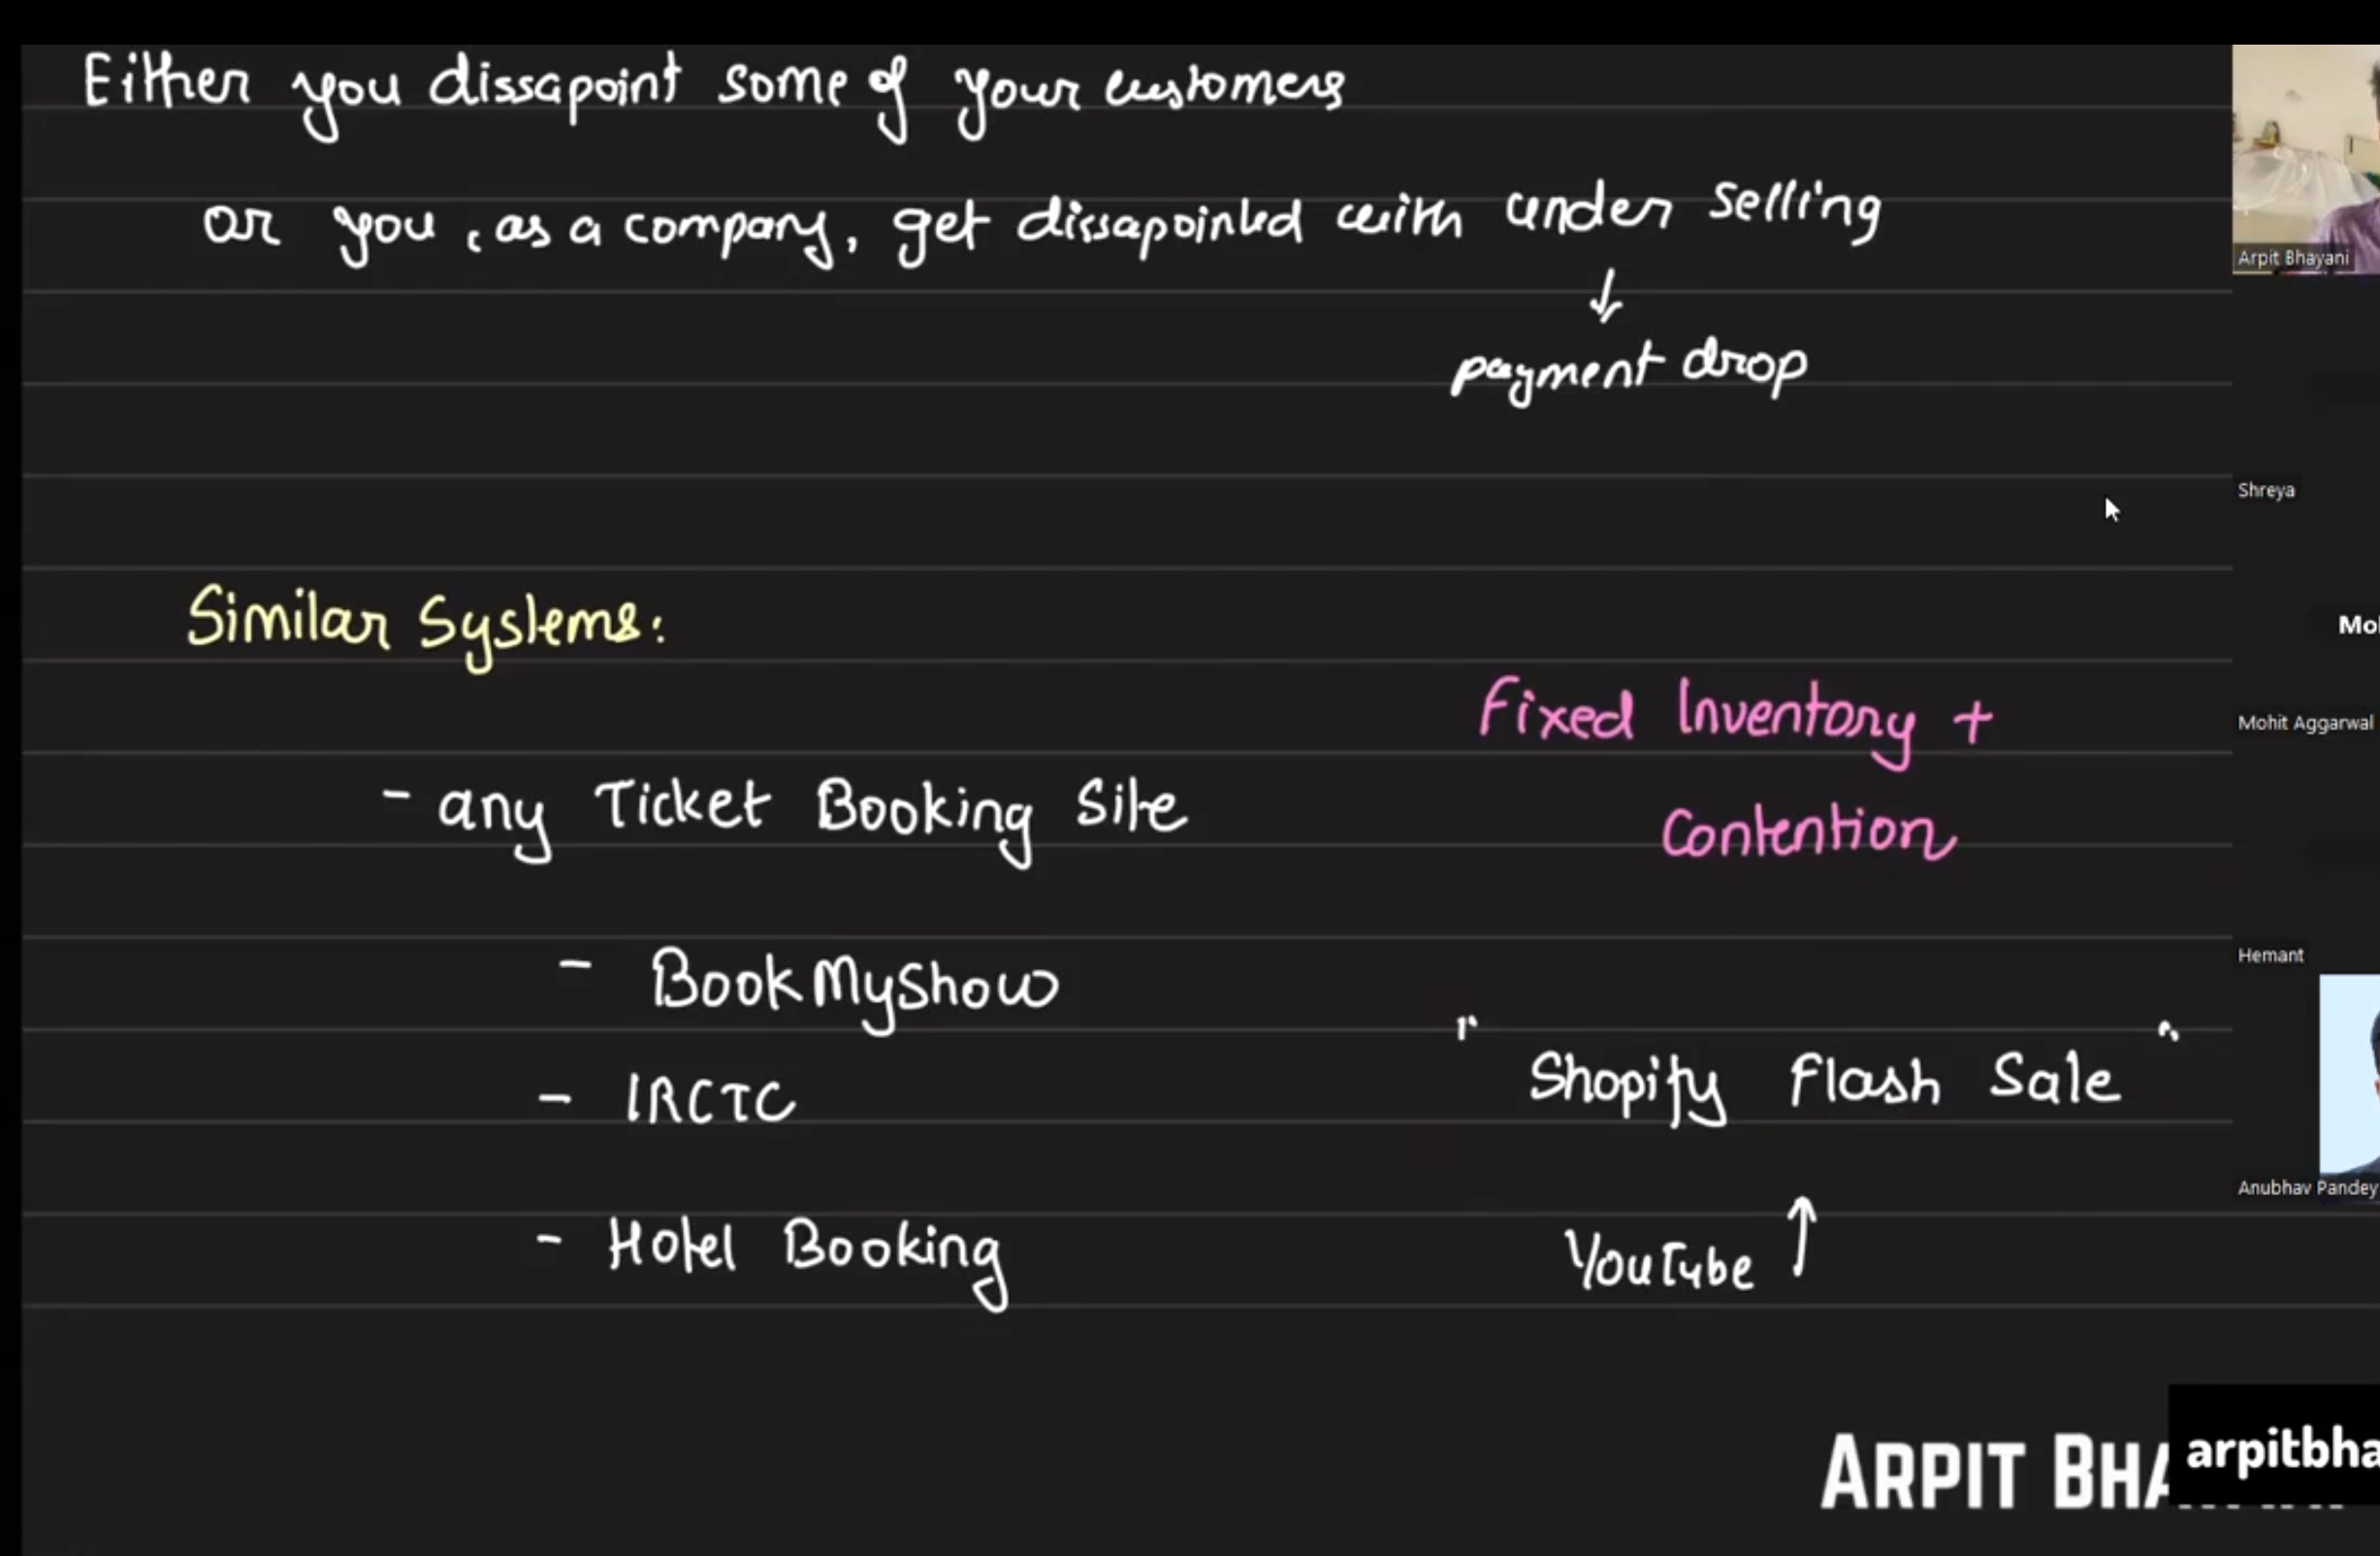 Either you dissapoint some of your customers
or you, as a company, get dissapointed with under selling
↓
payment drop
Similar Systems:
- any Ticket Booking Site
- BookMyShow
- IRCTC
- Hotel Booking
Fixed Inventory +
Contention
" Shopify Flash Sale "
YouTube ↑
Arpit Bhayani
Shreya
Mol
Mohit Aggarwal
Hemant
Anubhav Pandey
ARPIT BHA
arpitbha